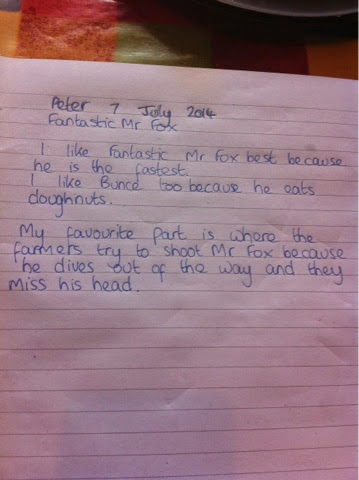 Peter 7 July 2014
Fantastic Mr Fox
I like Fantastic Mr Fox best because
he is the fastest.
I like Bunce too because he eats
doughnuts.
My favourite part is where the
farmers try to shoot Mr Fox because
he dives out of the way and they
miss his head.